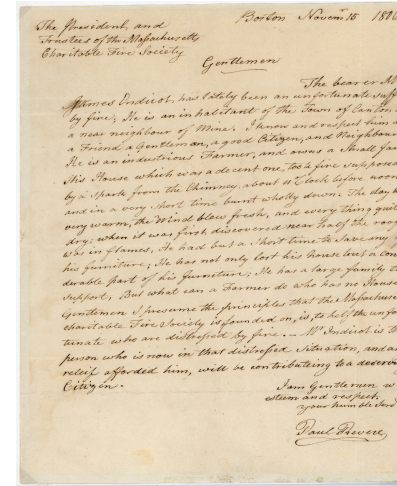 The President, and
Boston Novemr. 15 180
Trustees of the Massachusetts
Charitable Fire Society
Gentlemen
The bearer M
James Endicot, has lately been an unfortunate suff
by fire; He is an inhabitant of the Town of Canton
a near neighbour of Mine. I know and respect him a
a Friend a Gentleman, a good Citizen, and Neighbour
He is an industrious Farmer, and owns a Small far
His House which was a decent one, took fire suppose
by a Spark from the Chimney, about 11 oClock before noon
and in a very short time burnt wholly down. The day w
very warm, the Wind blew fresh, and every thing quit
dry; when it was first discovered near half the roof
was in flames, He had but a short time to save any
his furniture; He has not only lost his house but a con
derable part of his furniture; He has a large family t
support, But what can a Farmer do who has no House
Gentlemen I presume the principles that the Massachuse
charitable Fire Society is founded on, is, to help the unfor
tunate who are distressed by fire. — Mr Endicot is th
person who is now in that distressed Situation, and a
releif afforded him, will be contributing to a deserv
Citizen.
I am Gentlemen w
esteem and respect
your humble Serv
Paul Revere